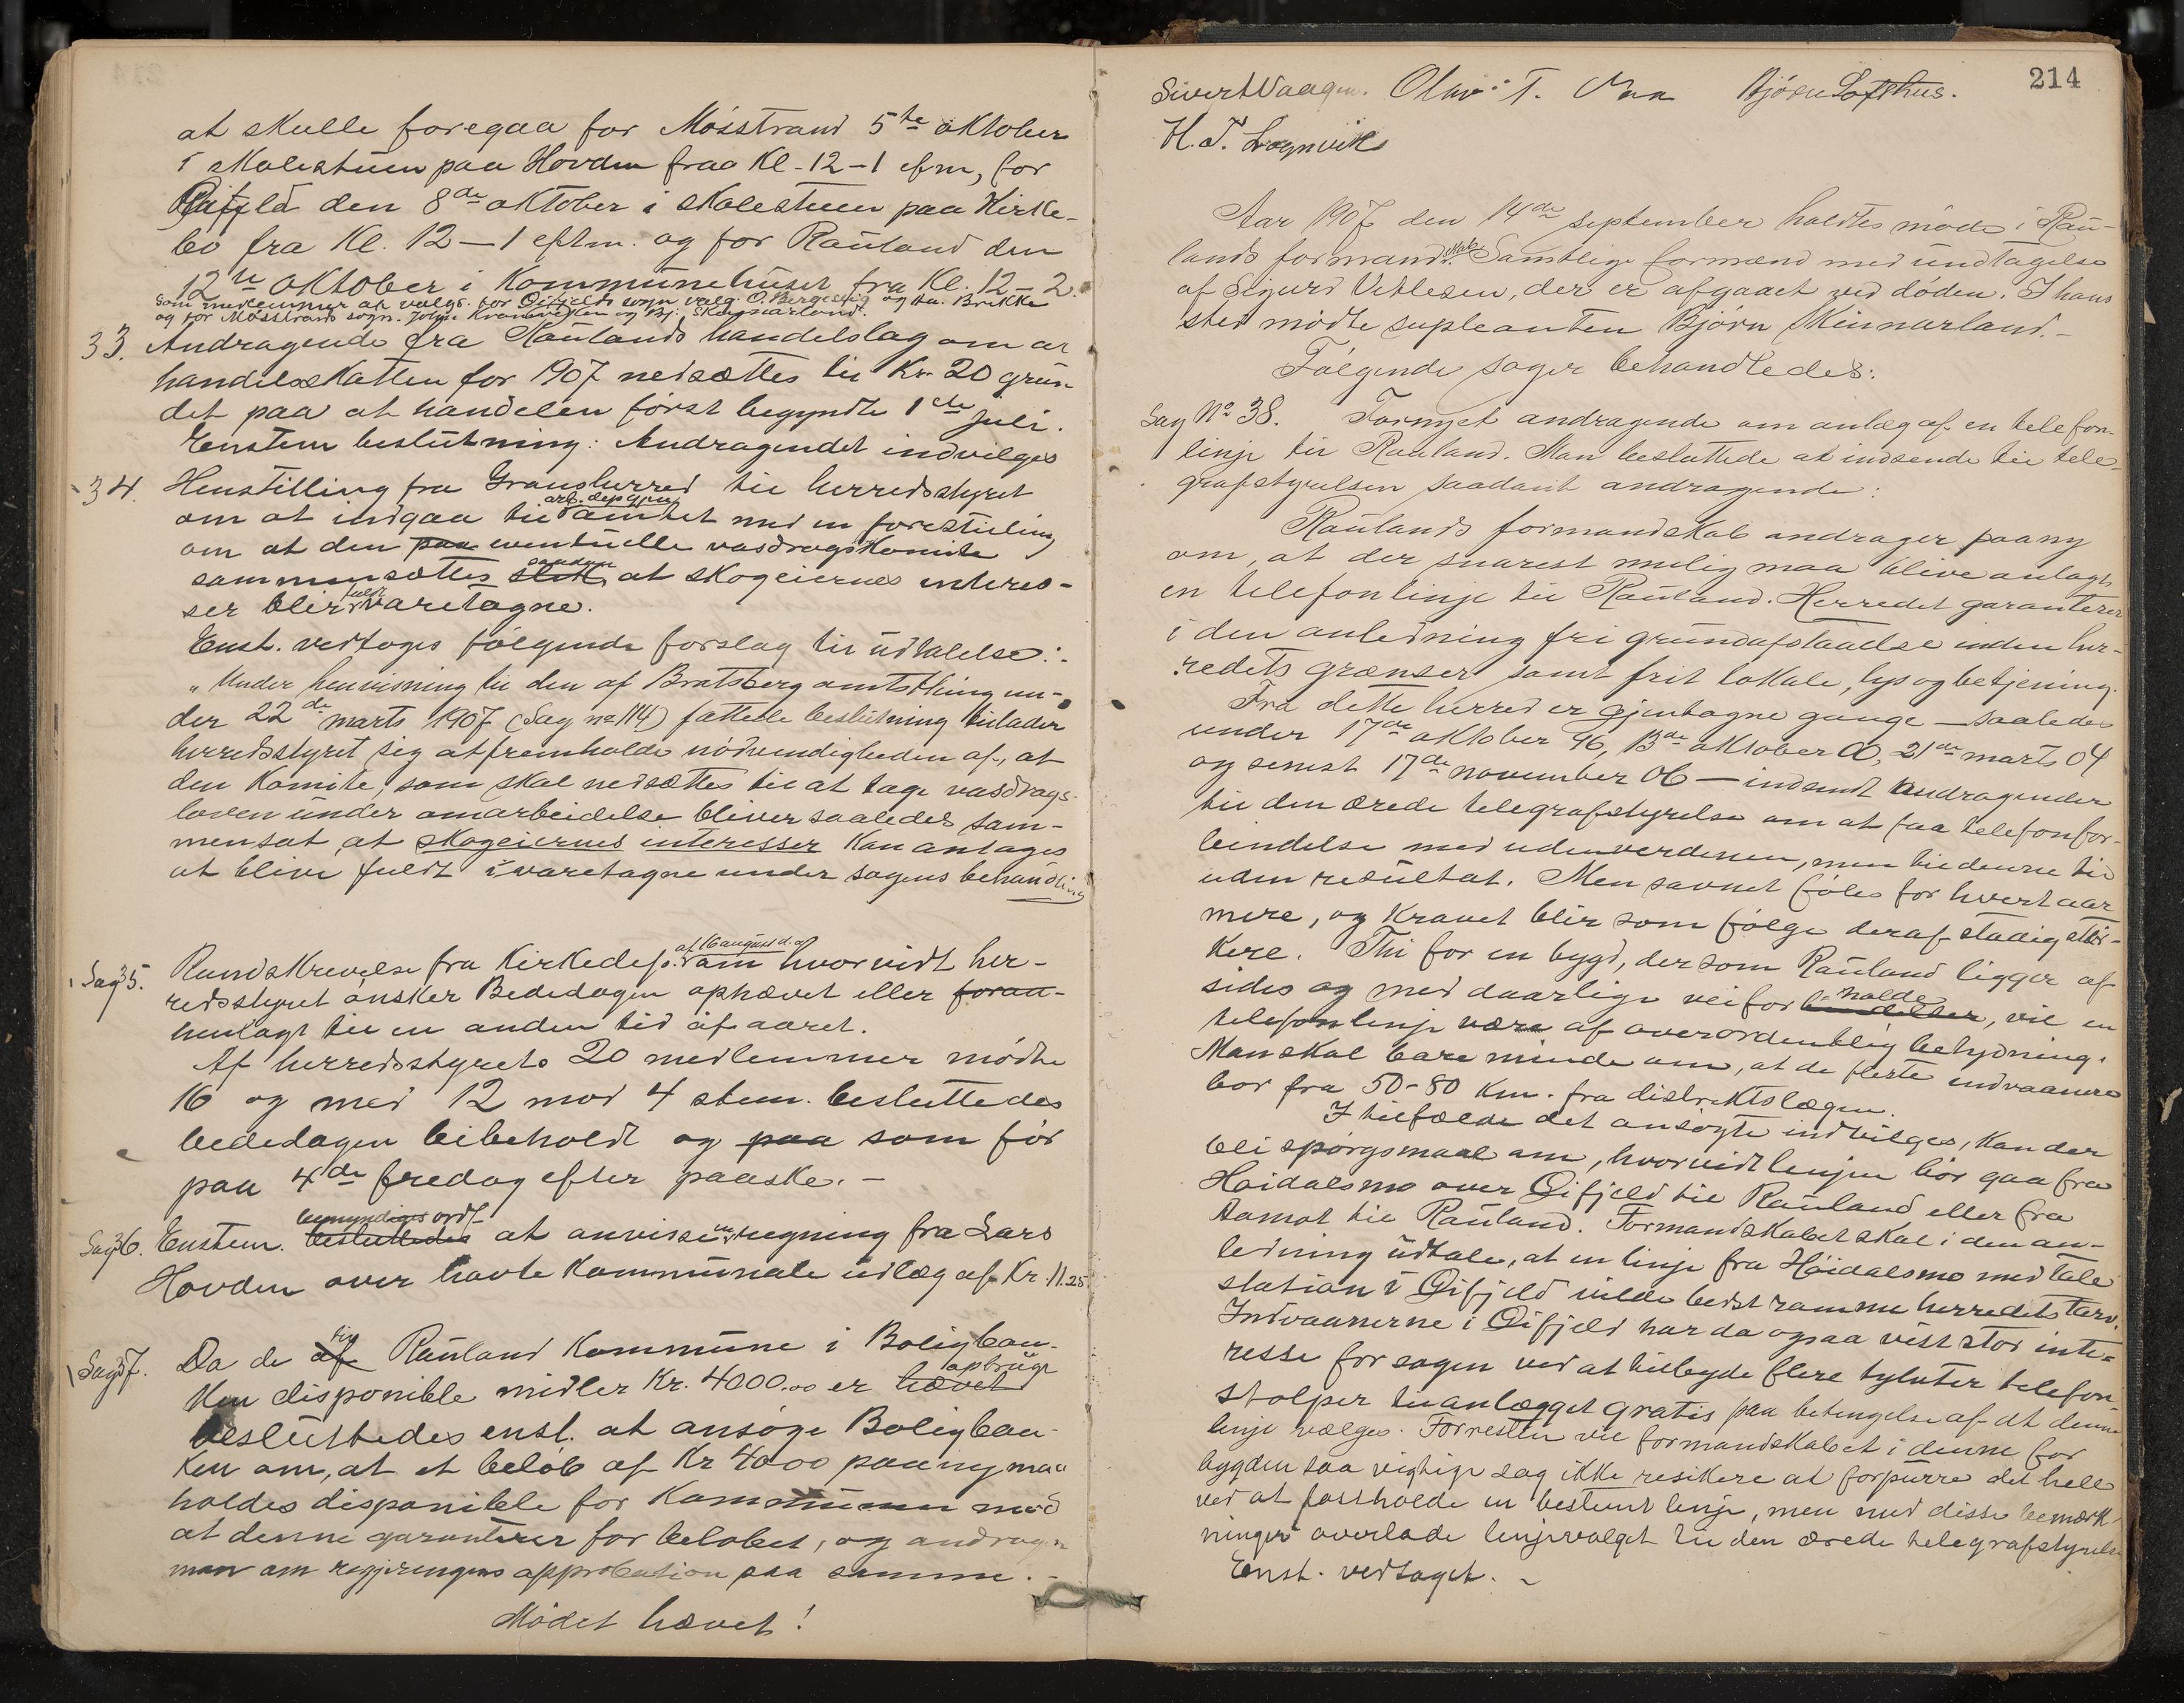 at skulle foregaa for Mösstrand 5te oktober
i skolestuen paa Hovden fraa Kl. 12–1 efm, for
Öifjeld den 8de oktober i skolestuen paa Kirke-
bö fra Kl. 12–1 eftm. og for Rauland den
12te oktober i Kommunehuset fra Kl. 12–2.
Som medlemmer af valgs. for Öifjelds sogn valg. O. Bergestig og Ha. Brekke
og for Mösstrands sogn. Kromviken og Bj. Skinnarland.
33. Andragende fra Raulands handelslag om at
handelsskatten for 1907 nedsættes til Kr. 20 grun-
det paa at handelen först begyndte 1ste Juli.
Enstem beslutning: Andragendet indvilges
34. Henstilling fra Gransherred til herredsstyret
om at indgaa til arb. dep gjen. amtet med en forestilling
om at den paa eventuelle vasdragskomite
sammensættes slik saadan at skogeiernes interes-
ser blir fuldt varetagne.
Enst. vedtoges fölgende forslag til udtalelse:
„Under henvisning til den af Bratsberg amtsthing un-
der 22de marts 1907 (Sag no 114) fattede beslutning tillader
herredsstyret sig at fremholde nödvendigheden af, at
den Komite, som skal nedsættes til at tage vasdrags-
loven under omarbeidelse bliver saaledes sam-
mensat, at skogeiernes interesser kan antages
at blive fuldt ivaretagne under sagens behandling
Sag 35. Rundskrivelse fra Kirkedep. af 16 august d.a. om hvorvidt her-
redsstyret önsker Bededagen ophævet eller foran-
henlagt til en anden tid af aaret.
Af herredsstyrets 20 medlemmer mödte
16 og med 12 mod 4 stem. besluttedes
bededagen bibeholdt og paa som för
paa 4de fredag efter paaske. –
Sag 36. Enstem. besluttedes bemyndiges ordf. at anvise en regning fra Lars
Hovden over havte Kommunale udlæg af Kr. 11.25
Sag 37. Da de af til Rauland Kommune i Boligban-
ken disponible midler Kr. 4000.00 er hævet opbrugt
besluttedes enst. at ansöge Boligban-
ken om, at et belöb af Kr 4000 paany maa
holdes disponible for Kommunen mod
at denne garanterer for belöbet, og andrager
man om regjeringens approbation paa samme. –
Mödet hævet!
214
Sivert Vaagen. Olav T. Vaa Björn Lofthus.
H. T. Lognvik
Aar 1907 den 14de september holdtes möde i Rau-
lands formandskab. Samtlige formænd med undtagelse
af Sigurd Vetlesen, der er afgaaet ved döden. I hans
sted mödte supleanten Björn Skinnarland. –
Fölgende sager behandledes:
Sag No 38. Fornyet andragende om anlæg af en telefon-
linje til Rauland. Man besluttede at indsende til tele-
grafstyrelsen saadant andragende:
Raulands formandskab andrager paany
om, at der snarest mulig maa blive anlagt
en telefonlinje til Rauland. Herredet garanterer
i den anledning fri grundafstaaelse inden her-
redets grænser samt frit lokale, lys og betjening.
Fra dette herred er gjentagne gange – saaledes
under 17de oktober 96, 13de oktober 00, 21de marts 04
og senest 17de november 06 – indsendt andragender
til den ærede telegrafstyrelse om at faa telefonfor-
bindelse med udenverdenen, men hiedenne til
uden resultat. Men savnet föles for hvert aar
mere, og kravet blir som fölge deraf stadig stær-
kere. Thi for en bygd, der som Rauland ligger af-
sides og med daarlige veiforbindelser holde, vil en
telefonlinje være af overordentlig betydning.
Man skal bare minde om, at de fleste indvaanere
bor fra 50-80 Km. fra distriktslægen.
I tilfælde det ansögte indvilges, kan der
bli spörgsmaal om, hvorvidt linjen bör gaa fra
Höidalsmo over Öifjeld til Rauland eller fra
Aamot til Rauland. Formandskabet skal i den an-
ledning udtale, at en linje fra Höidalsmo med tale
station i Öifjeld vilde bedst ramme herredets tarv.
Indvaanerne i Öifjeld har da ogsaa vist stor inte-
resse for sagen ved at tilbyde flere tylvter telefon-
stolper til anlægget gratis paa betingelse af at denne
linje vælges. Forresten vil formandskabet i denne for
bygden saa vigtige sag ikke resikere at forpurre det hele
ved at fastholde en bestemt linje, men med disse bemærk-
ninger overlade linjevalget til den ærede telegrafstyrelse
Enst. vedtaget. –